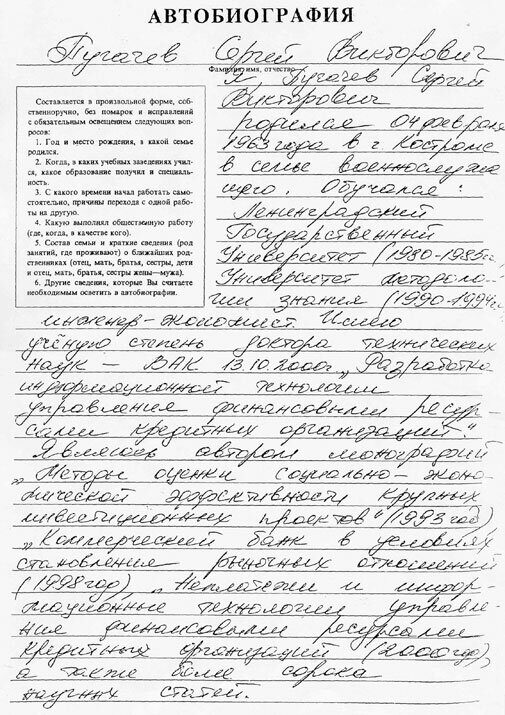 АВТОБИОГРАФИЯ
Пугачев Сергей Викторович
Фамилия, имя, отчество
Я Пугачев Сергей
Викторович
родился 04 февраля
1963 года в г Костроме
в семье военнослужа
щего. Обучался:
Ленинградский
Государственный
Университет (1980-1985гг
Университет методоло-
гии знания (1990-1994гг
Составляется в произвольной форме, соб-
ственноручно, без помарок и исправлений
с обязательным освещением следующих воп-
росов:
1. Год и место рождения, в какой семье
родился.
2. Когда, в каких учебных заведениях учил-
ся, какое образование получил и специаль-
ность.
3. С какого времени начал работать само-
стоятельно, причины перехода с одной рабо-
ты на другую.
4. Какую выполнял общественную работу
(где, когда, в качестве кого).
5. Состав семьи и краткие сведения (род
занятий, где проживают) о ближайших род-
ственниках (отец, мать, братья, сестры, дети
и отец, мать, братья, сестры жены—мужа).
6. Другие сведения, которые Вы считаете
необходимым осветить в автобиографии.
инженер-экономист Имею
учёную степень доктора технических
наук – ВАК 13.10.2000г „Разработка
информационной технологии
управления финансовыми ресур-
сами кредитных организаций".
Являюсь автором монографий
„Методы оценки социально-эконо-
мической эффективности крупных
инвестиционных проектов" (1993 год)
„Коммерческий банк в условиях
становления рыночных отношений
(1998 год), „Неплатежи и инфор-
мационные технологии управле-
ния финансовыми ресурсами
кредитных организаций (2000 год),
а также более сорока
научных статей.